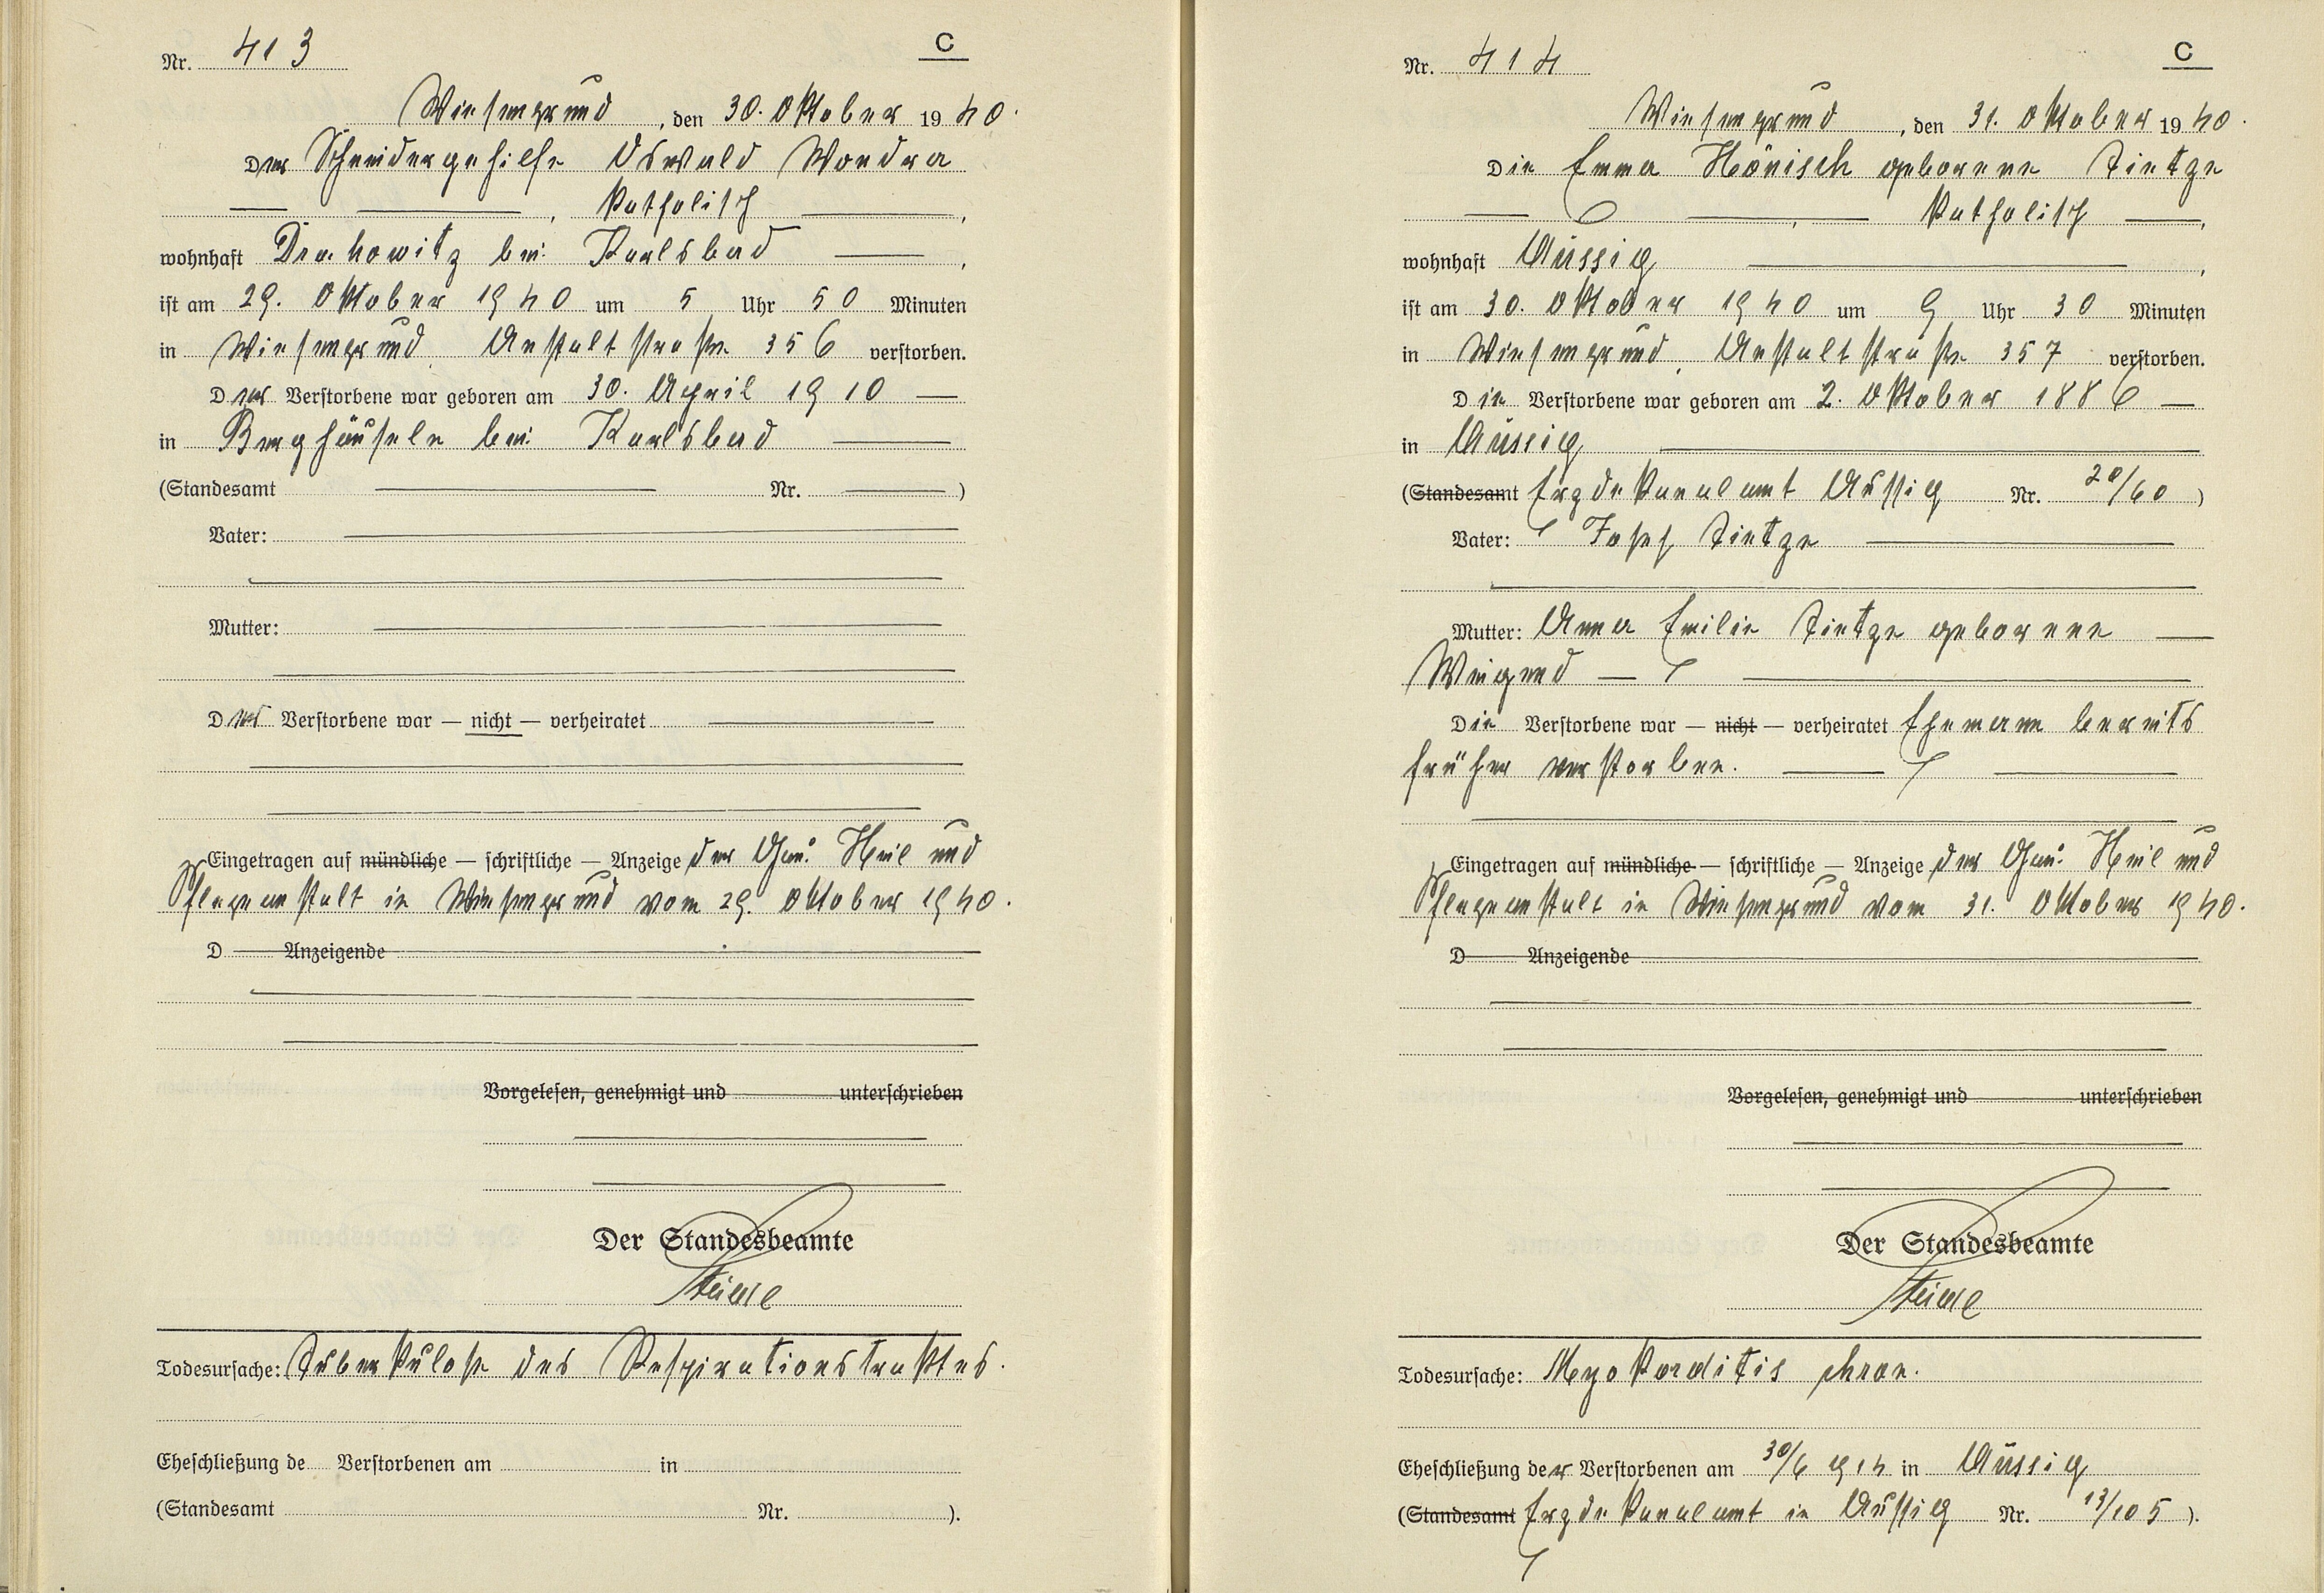 Nr. 413
C
Wiesengrund, den 30. Oktober 1940.
Der Schneidergehilfe Oswald Wondra
—— ——, katholisch ——,
wohnhaft Drahowitz bei Karlsbad ——,
ist am 29. Oktober 1940 um 5 Uhr 50 Minuten
in Wiesengrund, Anstaltstraße 356 verstorben.
Der Verstorbene war geboren am 30. April 1910 —
in Berghäuseln bei Karlsbad ——
(Standesamt —— Nr. ——)
Vater: ——
Mutter: ——
Der Verstorbene war — nicht — verheiratet ——
Eingetragen auf mündliche — schriftliche — Anzeige der Gau: Heil und
Pflegeanstalt in Wiesengrund vom 29. Oktober 1940.
D —— Anzeigende ——
Vorgelesen, genehmigt und —— unterschrieben
Der Standesbeamte
Todesursache: Tuberkulose des Respirationstraktes.
Eheschließung de Verstorbenen am in
(Standesamt Nr. ).
Nr. 414
C
Wiesengrund, den 31. Oktober 1940.
Die Emma Hönisch geborene Tietze
—— ——, —— katholisch ——,
wohnhaft Aussig ——,
ist am 30. Oktober 1940 um 9 Uhr 30 Minuten
in Wiesengrund, Anstaltstraße 357 verstorben.
Die Verstorbene war geboren am 2. Oktober 1886 —
in Aussig ——
(Standesamt Erzdekanalamt Aussig Nr. 20/60)
Vater: Josef Tietze ——
Mutter: Anna Emilie Tietze geborene —
Weigend — ——
Die Verstorbene war — nicht — verheiratet Ehemann bereits
früher verstorben. —— ——
Eingetragen auf mündliche — schriftliche — Anzeige der Gau: Heil und
Pflegeanstalt in Wiesengrund vom 31. Oktober 1940.
D —— Anzeigende ——
Vorgelesen, genehmigt und —— unterschrieben
Der Standesbeamte
Todesursache: Myokarditis chron.
Eheschließung der Verstorbenen am 30/6 914 in Aussig
(Standesamt Erzdekanalamt in Aussig Nr. 13/105).